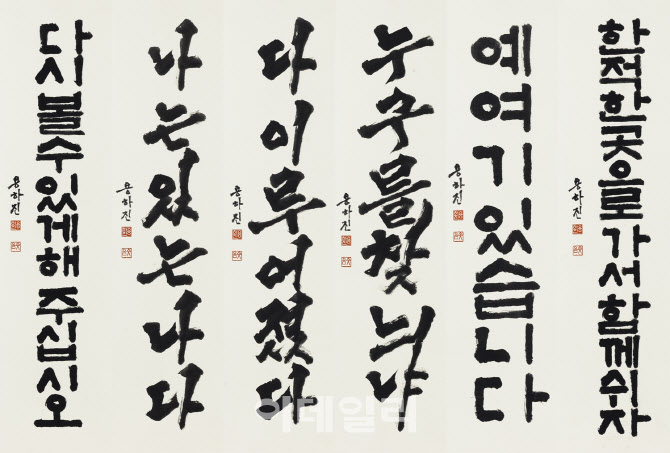 다시 볼 수 있게 해 주십시오
용하진
나는 있는 나다
용하진
다 이루어졌다
용하진
누구를 찾늬냐
용하진
예 여기 있습니다
용하진
한적한 곳으로 가서 함께 쉬자
용하진
이데일리